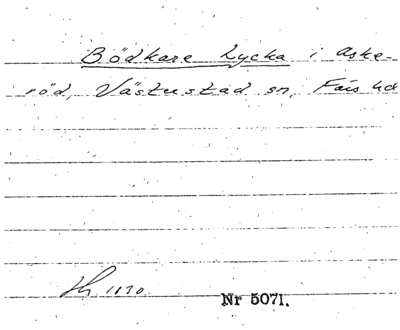 Bödkare Lycka i Aske-
röd, Västerstad sn, Färs hd
1870.
Nr 5071.